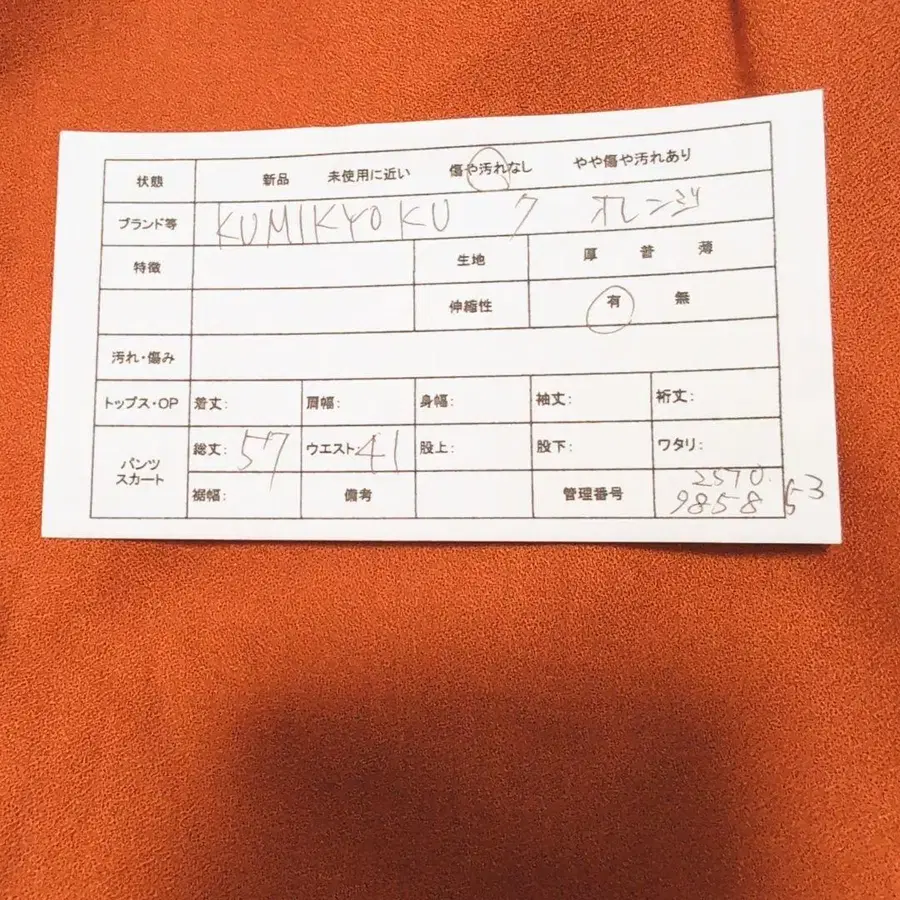 状態 新品 未使用に近い 傷や汚れなし やや傷や汚れあり
ブランド等 KUMIKYOKU ク オレンジ
特徴 生地 厚 普 薄
伸縮性 有 無
汚れ・傷み
トップス・OP 着丈: 肩幅: 身幅: 袖丈: 裄丈:
パンツ スカート 総丈: 57 ウエスト 41 股上: 股下: ワタリ:
裾幅: 備考 管理番号 2570 9858